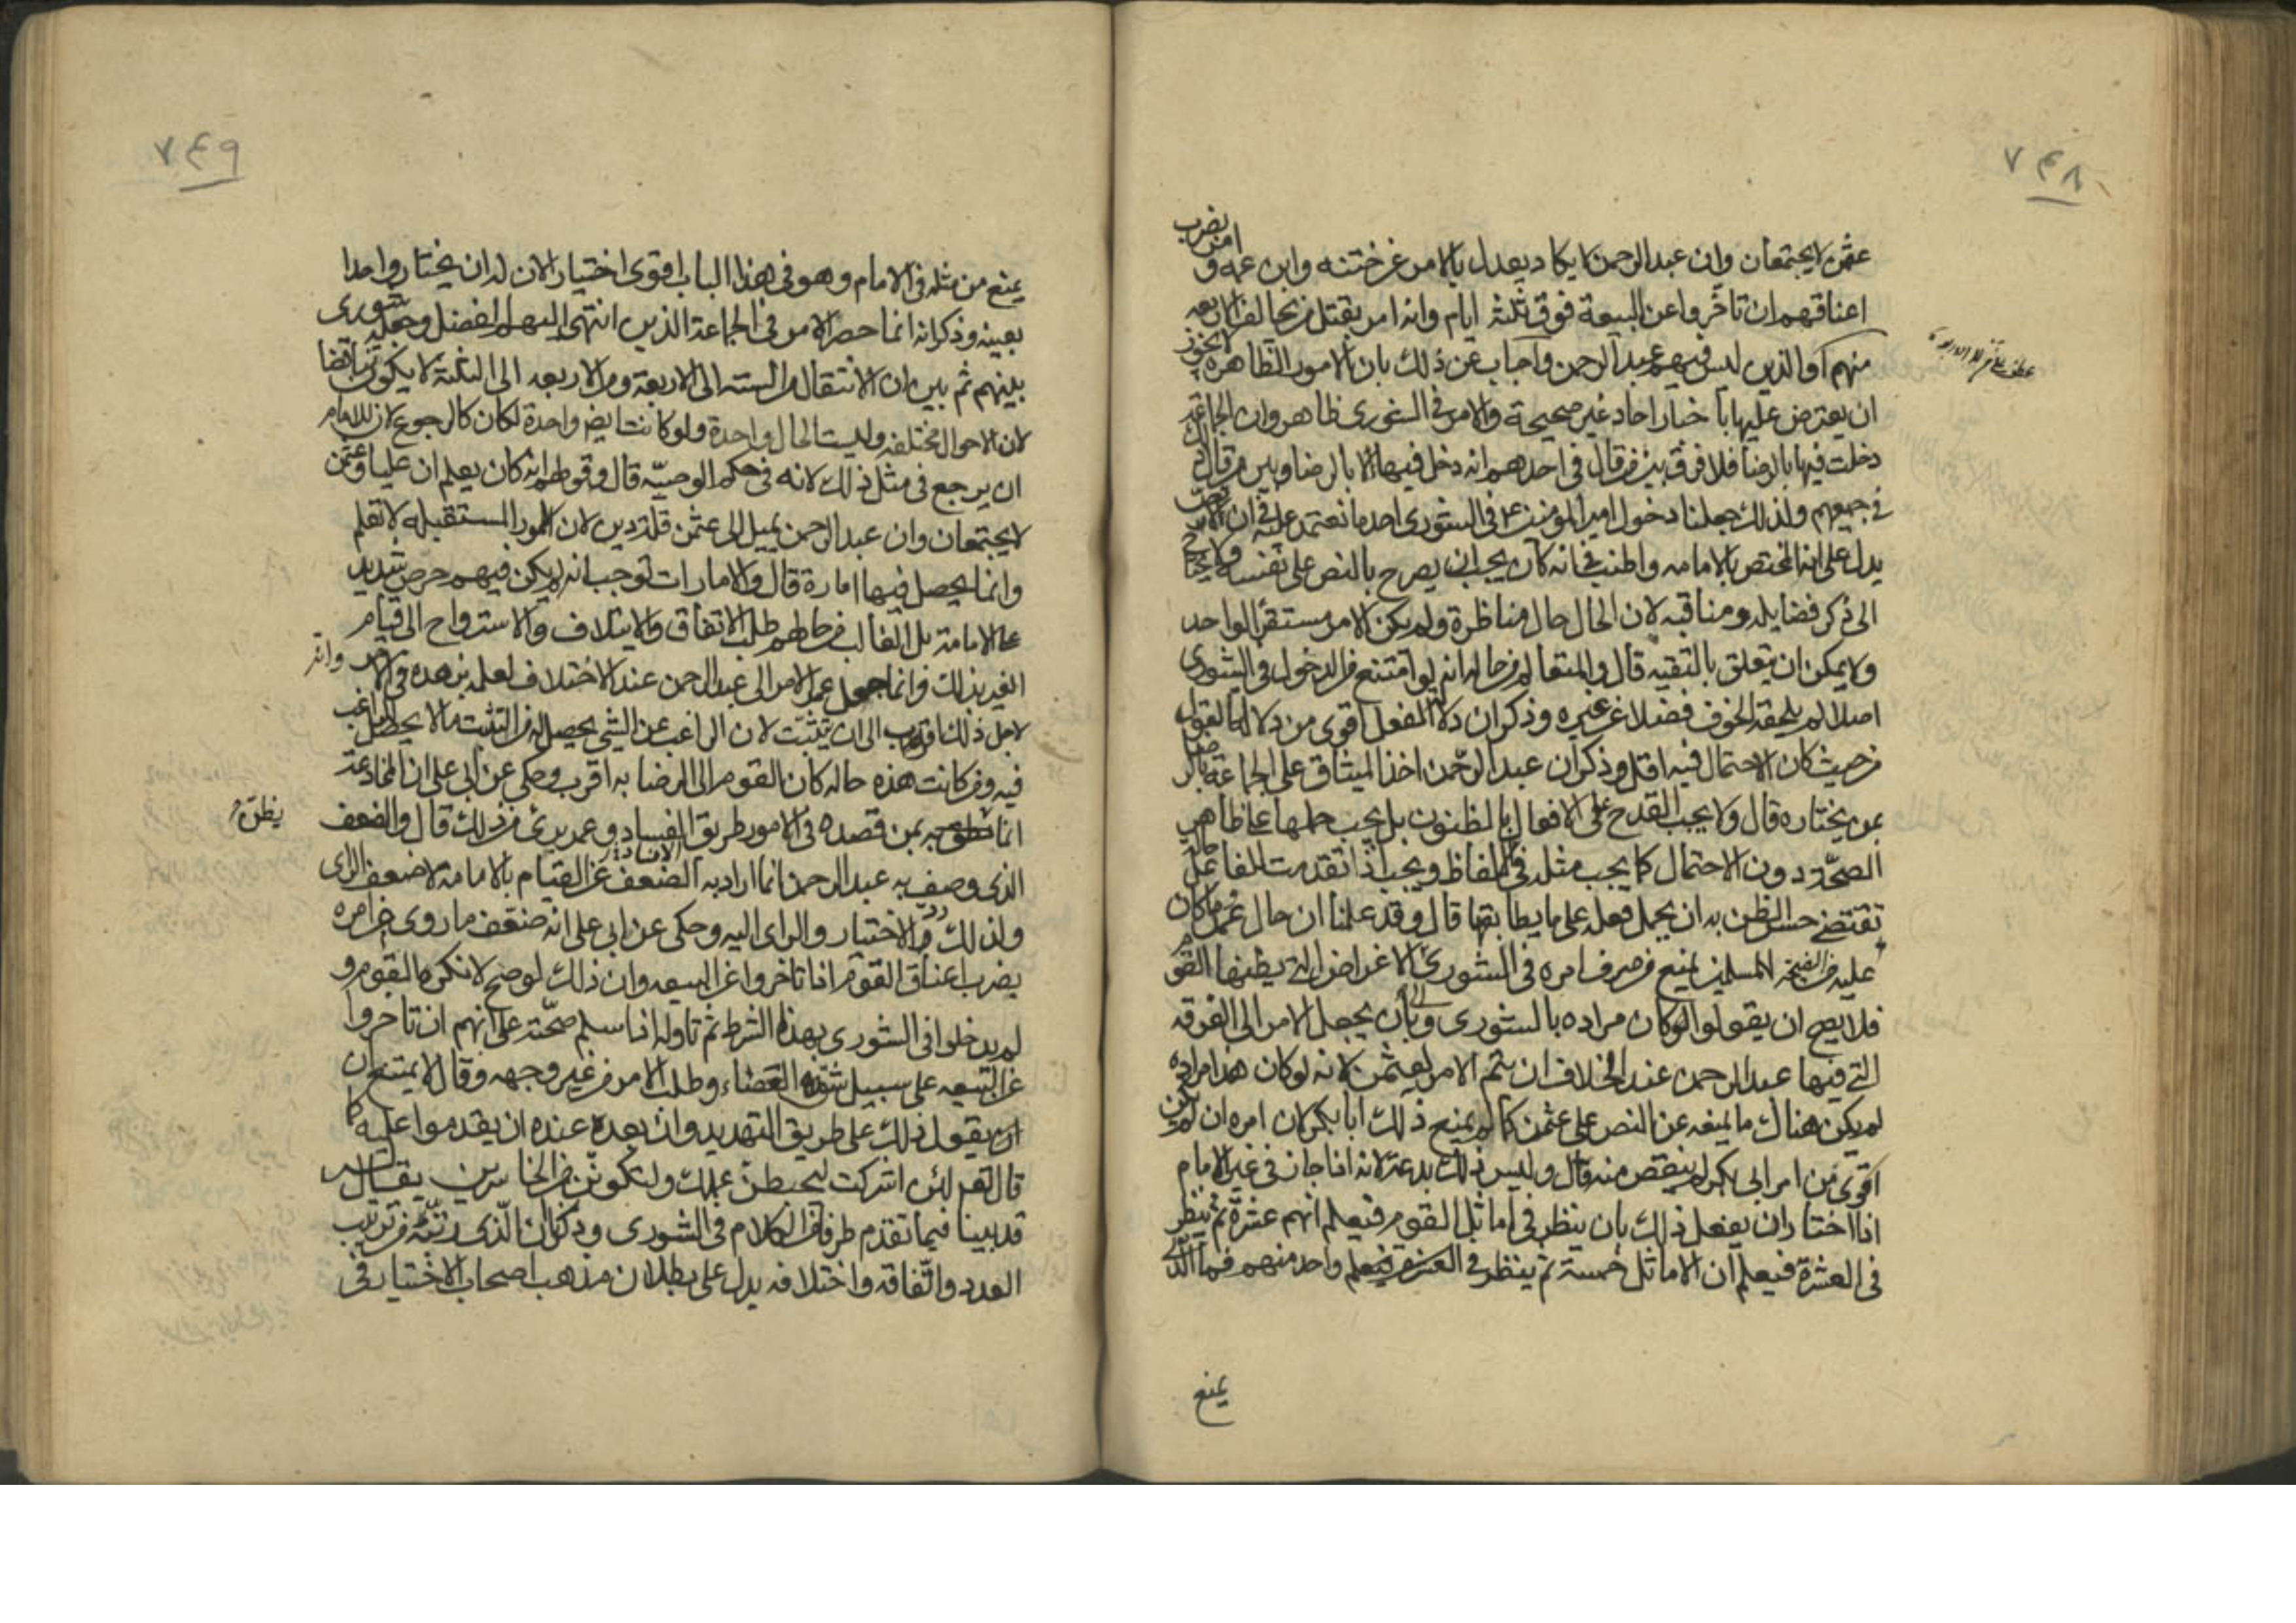 ٧٤٨
عثمن لا يجتمعان وان عبد الرحمن لا يكاد يعدل بالامر عن ختنه وابن عمه و امر بضرب
اعناقهم ان تاخروا عن البيعة فوق ثلثة ايام وانه امر بقتل من يخالف الاربعه
منهم او الذين ليس فيهم عبد الرحمن واجاب عن ذلك بان الامور الظاهره لا يجوز
ان يعترض عليها باخبار احاد غير صحيحة والامر في الشورى ظاهر وان الجماعة
دخلت فيها بالرضا فلا فرق بين من قال في احدهم انه دخل فيها لا بالرضا وبين من قال ذلك
في جميعهم ولذلك جعلنا دخول امير المؤمنين ع في الشورى احد ما نعتمد عليه في ان لا نص
يدل على انه المختص بالامامه واطنب في انه كان يجب ان يصرح بالنص على نفسه ولا يحتاج
الى ذكر فضايله ومناقبه لان الحال حال مناظرة ولم يكن الامر مستقرا لواحد
ولا يمكن ان يتعلق بالتقيه قال والمتعالم من حاله انه لو امتنع من الدخول في الشورى
اصلا لم يلحقه الخوف فضلا عن غيره وذكر ان دلالة الفعل اقوى من دلالة القول
من حيث كان الاحتمال فيه اقل وذكر ان عبد الرحمن اخذ الميثاق على الجماعة بالرضا
بمن يختاره قال ولا يجب القدح في الافعال بالظنون بل يجب حملها على ظاهر
الصحة دون الاحتمال كما يجب مثله في الالفاظ ويجب اذا تقدمت للفاعل حالة
تقتضي حسن الظن به ان يحمل فعله على ما يطابقها قال وقد علمنا ان حال عمر وما كان
عليه من النصيحة للمسلمين يمنع من صرف امره في الشورى الى الاغراض التي يظنها القوم
فلا يصح ان يقولوا لو كان مراده بالشورى وبان يجعل الامر الى الفرقه
التي فيها عبد الرحمن عند الخلاف ان يتم الامر لعثمن لانه لو كان هذا مراده
لم يكن هناك ما يمنعه عن النص على عثمن كما لم يمنع ذلك ابا بكر لان امره ان لم يكن
اقوى من امر ابي بكر لم ينقص منه قال وليس ذلك بدعة لانه اذا جاز في غير الامام
اذا اختار ان يفعل ذلك بان ينظر في اماثل القوم فيعلم انهم عشرة ثم ينظر
في العشرة فيعلم ان الاماثل خمسة ثم ينظر في الخمسة فيعلم واحد منهم فما الذي
يمنع
٧٤٩
يمنع من مثله في الامام وهو في هذا الباب اقوى اختيارا لان له ان يختار واحدا
بعينه وذكر انه انما حصر الامر في الجماعة الذين انتهى اليهم الفضل وجعله شورى
بينهم ثم بين ان الانتقال من الستة الى الاربعة ومن الاربعه الى الثلثة لا يكون تناقضا
لان الاحوال مختلفه وليست الحال واحدة ولو كانت ايضا واحدة لكان كالرجوع لان للامام
ان يرجع في مثل ذلك لانه في حكم الوصيّه قال وقولهم انه كان يعلم ان عليا وعثمن
لا يجتمعان وان عبد الرحمن يميل الى عثمن قلة دين لان الامور المستقبله لا تعلم
وانما يحصل فيها امارة قال والامارات توجب انه لم يكن فيهم حرص شديد
على الامامة بل الغالب من حالهم طلب الاتفاق والايتلاف والاسترواح الى قيام
الغير بذلك وانما جعل عمر الامر الى عبد الرحمن عند الاختلاف لعلمه بزهده في الامر وانه
لاجل ذلك اقرب الى ان يتثبت لان الراغب عن الشي يحصل له من التثبت ما لا يحصل للراغب
فيه ومن كانت هذه حاله كان القوم الى الرضا به اقرب وحكى عن ابي علي ان المخادعة
انما تظن بمن قصده في الامور طريق الفساد وعمر برئ من ذلك قال والضعف يظن
الذي وصف به عبد الرحمن انما اراد به الضعف عن القيام بالامامة لا ضعف الراى
ولذلك رد الاختيار والراى اليه وحكى عن ابي علي انه ضعّف ما روى من امره
بضرب اعناق القوم اذا تاخروا عن البيعه وان ذلك لو صح لانكره القوم و
لم يدخلوا في الشورى بهذا الشرط ثم تاوله اذا سلم صحّته على انهم ان تاخروا
عن البيعه على سبيل شق العصا وطلب الامر من غير وجهه وقال لا يمتنع
ان يقول ذلك على طريق التهديد وان بعد عنده ان يقدموا عليه كما
قال تعالى لئن اشركت ليحبطن عملك ولتكونن من الخاسرين يقال له
قد بينا فيما تقدم طرفا من الكلام في الشورى وذكرنا ان الذي رتبه من ترتيب
العدد واتفاقه واختلافه يدل على بطلان مذهب اصحاب الاختيار في